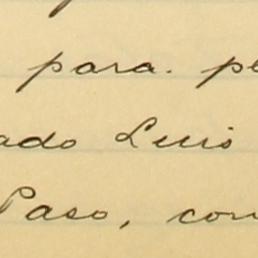 para. pe
ado Luis
Paso, con